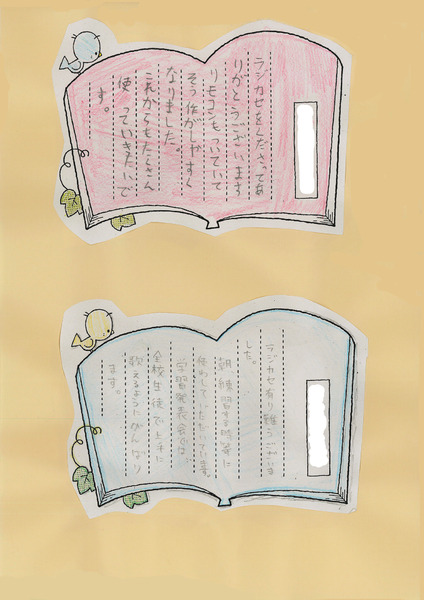 ラジカセをくださってあ
りがとうございます
リモコンもついていて
そう作がしやすく
なりました。
これからもたくさん
使っていきたいで
す。
ラジカセ有り難うございま
した。
朝練習する時等に
使わしていただいています。
学習発表会では、
全校生徒で上手に
歌えるようにがんばり
ます。